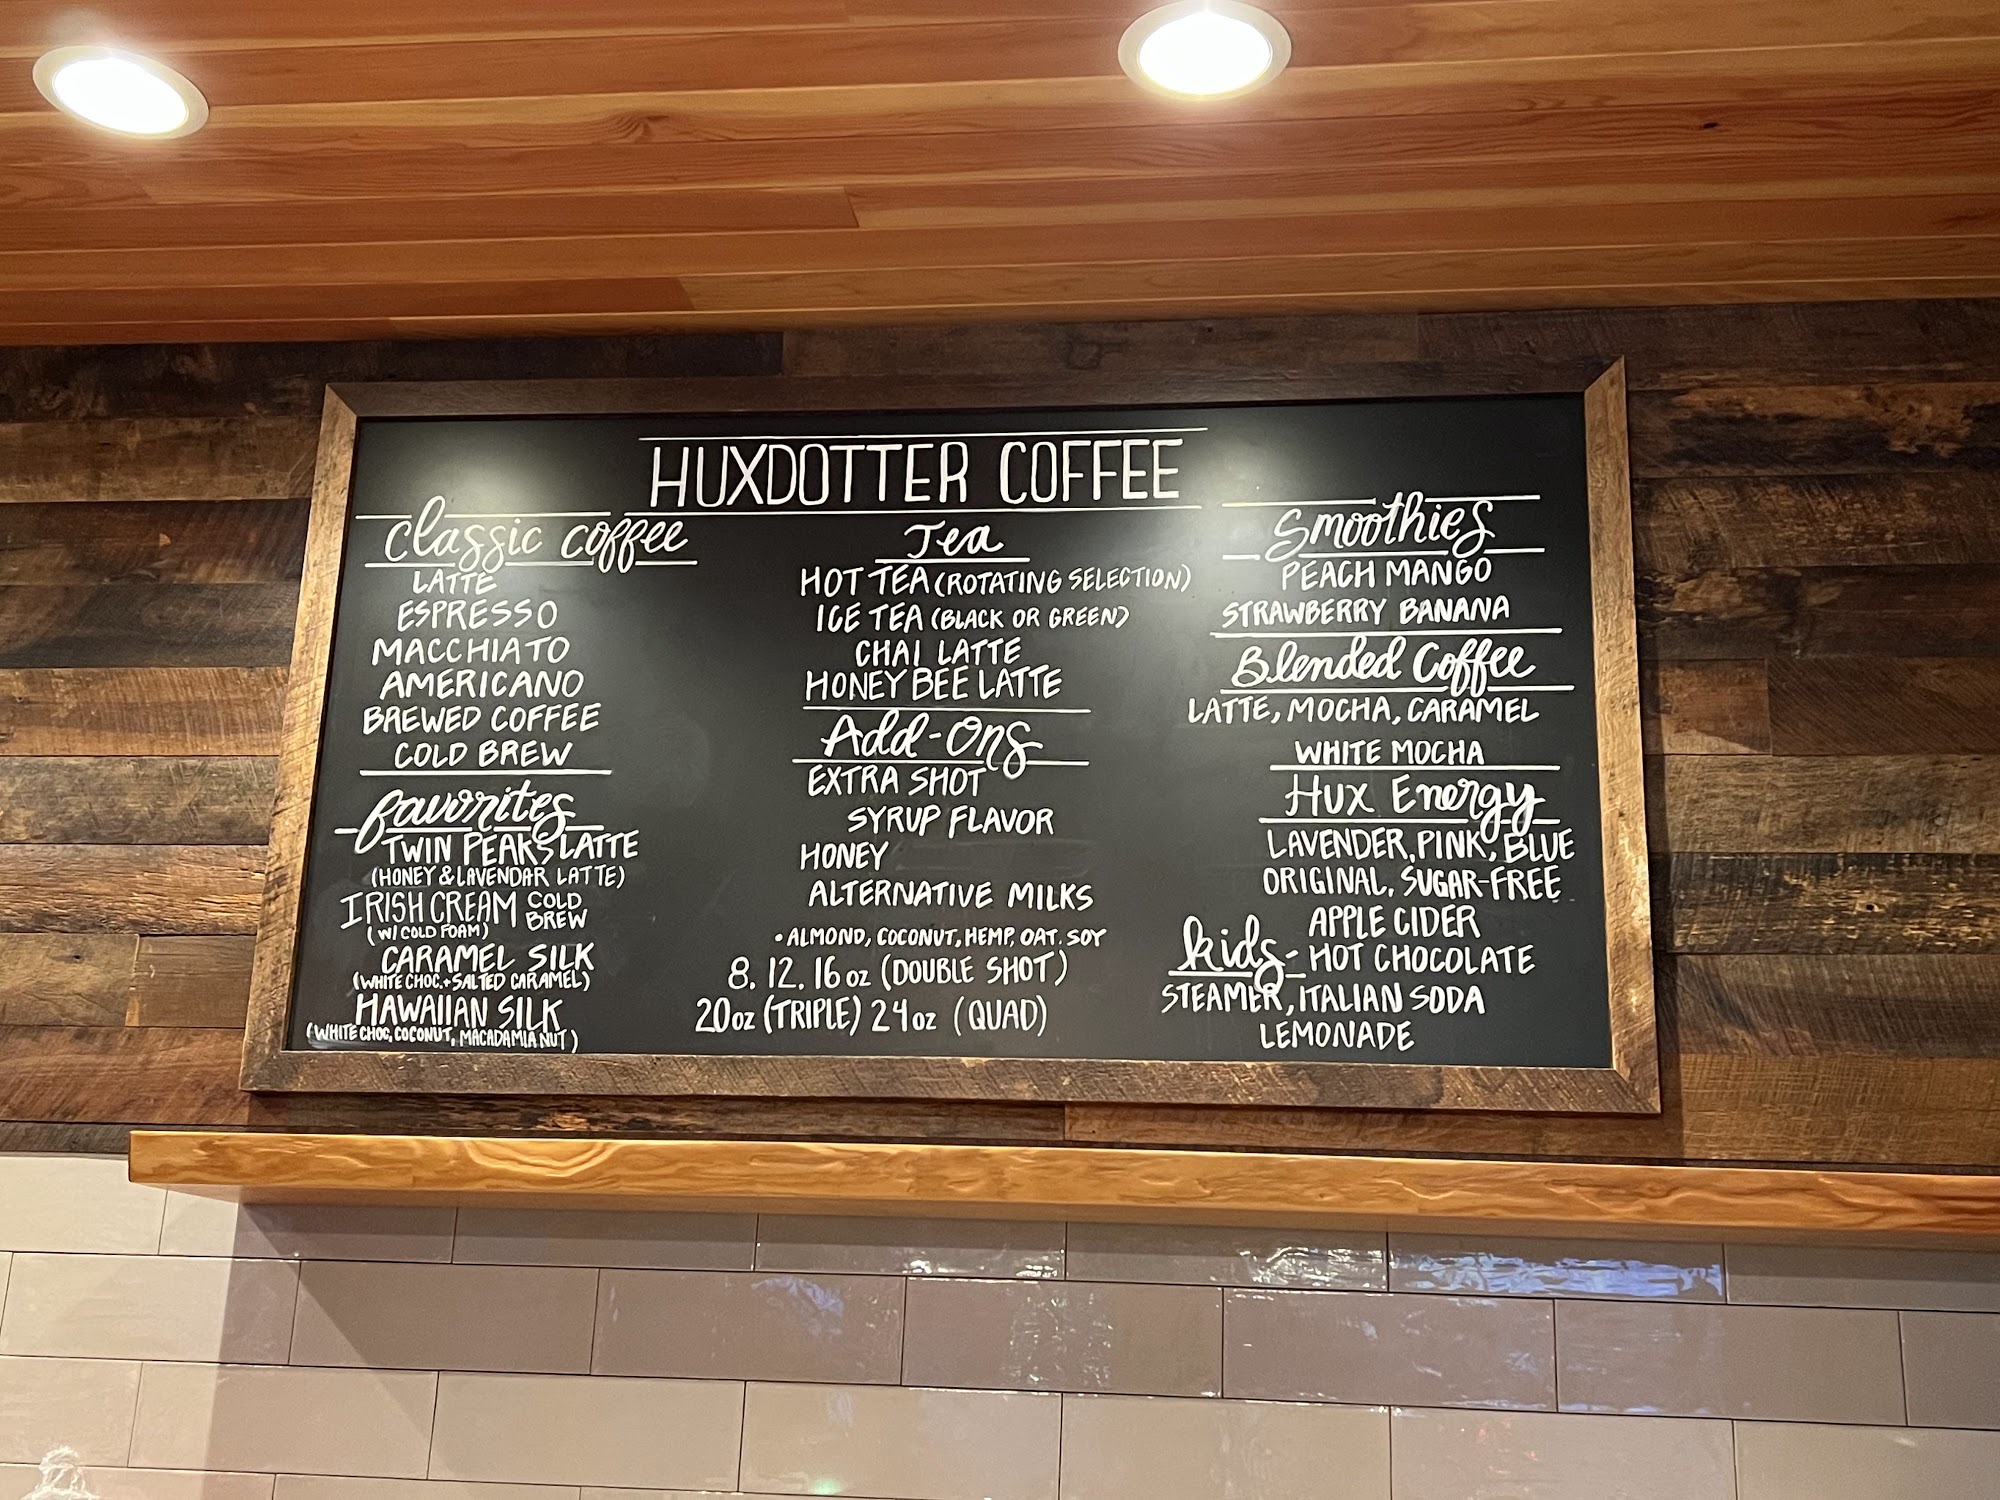 HUXDOTTER COFFEE
Classic Coffee
LATTE
ESPRESSO
MACCHIATO
AMERICANO
BREWED COFFEE
COLD BREW
favorites
TWIN PEAKS LATTE
(HONEY & LAVENDAR LATTE)
IRISH CREAM COLD BREW
(W/ COLD FOAM)
CARAMEL SILK
(WHITE CHOC.+SALTED CARAMEL)
HAWAIIAN SILK
(WHITE CHOC, COCONUT, MACADAMIA NUT)
Tea
HOT TEA (ROTATING SELECTION)
ICE TEA (BLACK OR GREEN)
CHAI LATTE
HONEY BEE LATTE
Add-Ons
EXTRA SHOT
SYRUP FLAVOR
HONEY
ALTERNATIVE MILKS
• ALMOND, COCONUT, HEMP, OAT. SOY
8. 12. 16 oz (DOUBLE SHOT)
20oz (TRIPLE) 24oz (QUAD)
Smoothies
PEACH MANGO
STRAWBERRY BANANA
Blended Coffee
LATTE, MOCHA, CARAMEL
WHITE MOCHA
Hux Energy
LAVENDER, PINK, BLUE
ORIGINAL, SUGAR-FREE
APPLE CIDER
kids- HOT CHOCOLATE
STEAMER, ITALIAN SODA
LEMONADE